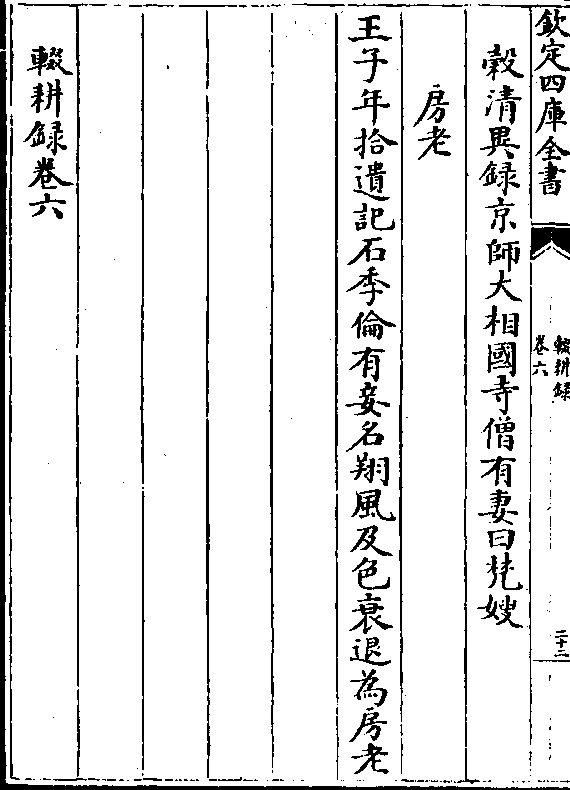 欽定四庫全書
輟耕録
卷六
二十二
穀清異録京師大相國寺僧有妻曰梵嫂
房老
王子年拾遺記石季倫有妾名翔風及色衰退為房老
輟耕録卷六